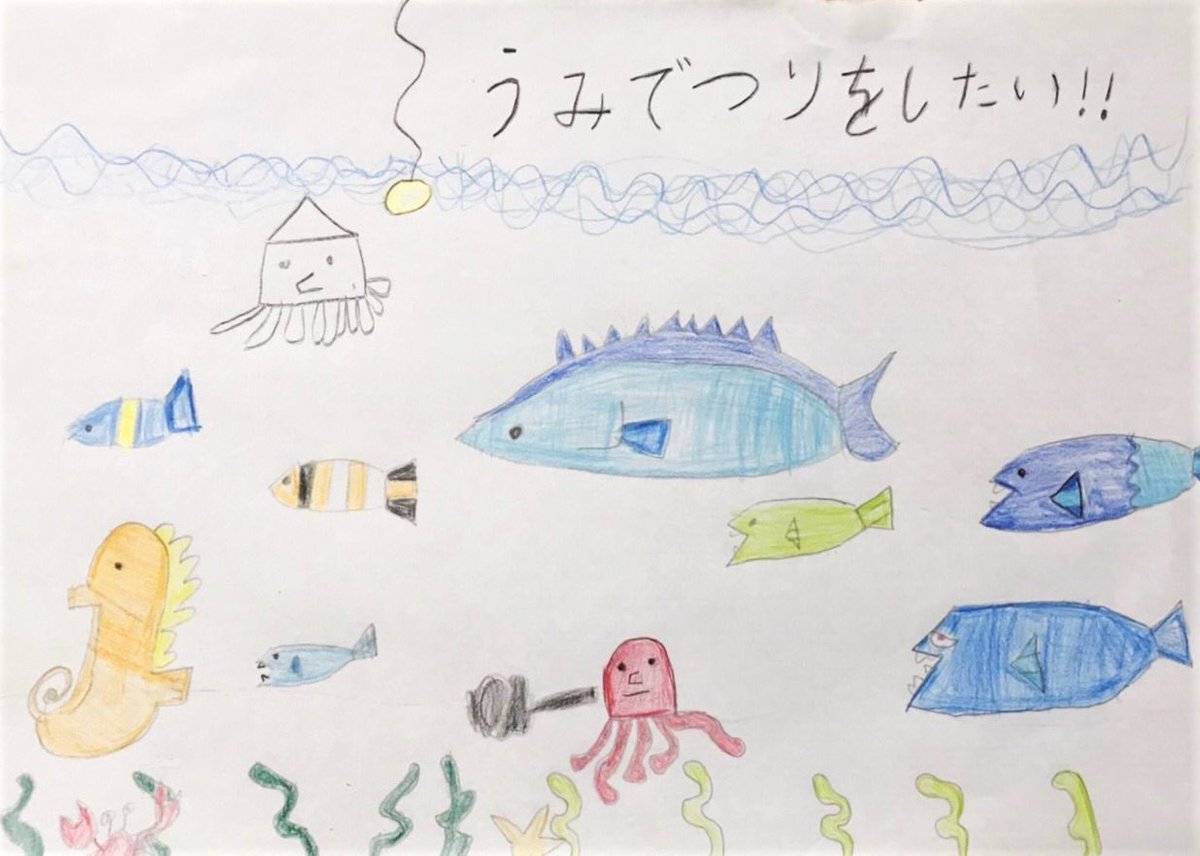 うみでつりをしたい!!